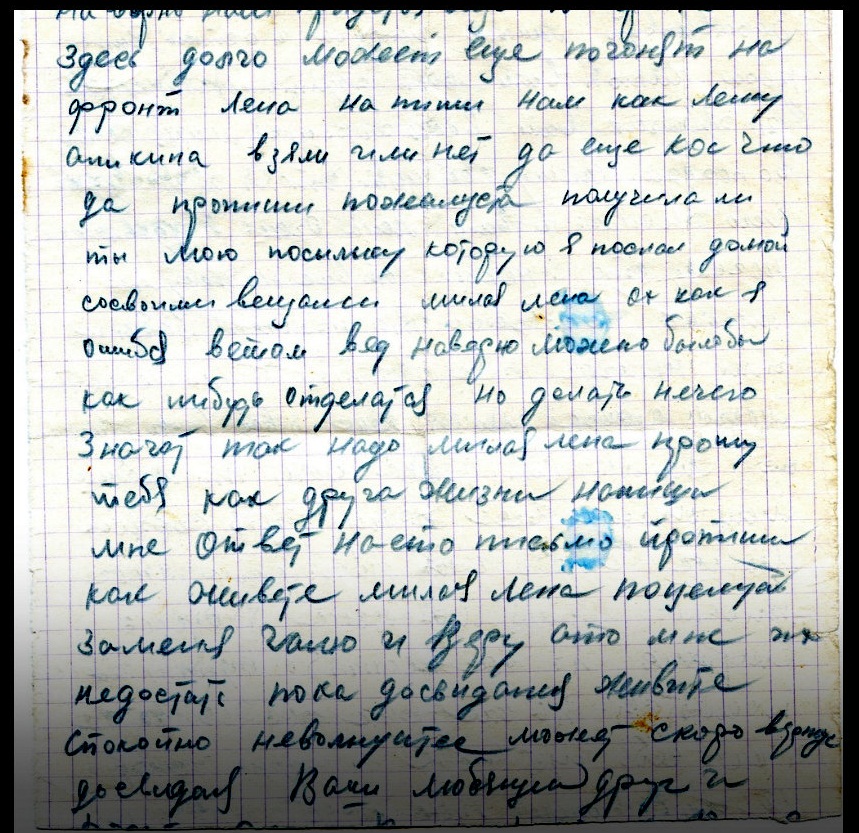 Здесь долго может еще погонят на
фронт лена напиши нам как Лешу
аникина взяли или нет да еще кое что
да пропиши пожалуста получила ли
ты мою посылку которую я послал домой
сосвоими вещами милая лена ох как я
ошибся вед наверно можно былобы
как нибудь отделатся но делать нечего
Значет так надо милая лена прошу
тебя как друга жизни напиши
мне Ответ наето письмо пропиши
как живете милая Лена поцелуй
Заменя Галю и Веру ато мне их
недостать пока досвидания живите
Спокойно неволнуйтес может скоро вернус
досвидая Ваш любящий друг и